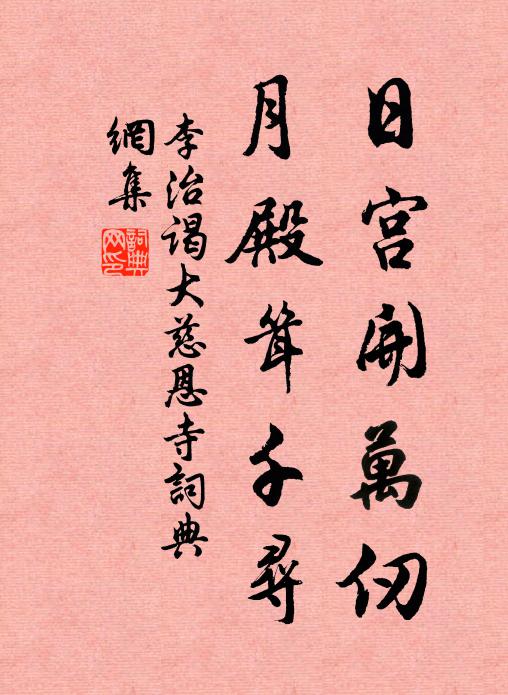 日宮開萬仞
月殿聳千尋
李治謁大慈恩寺詞典
網集
詞典
網印